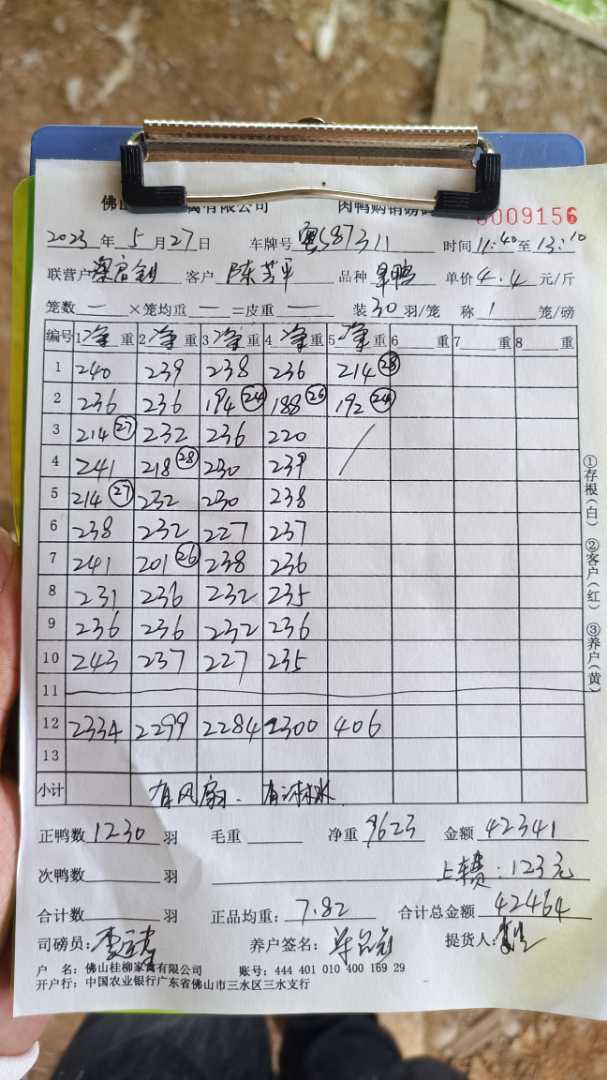 佛山 禽有限公司 肉鸭购销磅 0009156
2023年5月27日 车牌号 粤S87311 时间 11:40至13:10
联营户 客户 陈芳平 品种 单价 4.4 元/斤
笼数 一 ×笼均重 一 =皮重 一 装30羽/笼 称 1 笼/磅
编号 1 净重 2 净重 3 净重 4 净重 5 净重 6 重 7 重 8 重
1 240 239 238 236 214 (28)
2 236 236 194 (24) 188 (26) 192 (24)
3 214 (27) 232 236 220
4 241 218 (28) 230 239
5 214 (27) 232 230 238
6 238 232 227 237
7 241 201 (26) 238 236
8 231 236 232 235
9 236 236 232 236
10 243 237 227 235
11
12 2334 2299 2284 2300 406
13
小计 有风扇、有淋水
正鸭数 1230 羽 毛重 净重 9623 金额 42341
次鸭数 羽 上车费:123元
合计数 羽 正品均重: 7.82 合计总金额 42464
司磅员: 养户签名: 提货人:
户 名:佛山桂柳家禽有限公司 账号:444 401 010 400 169 29
开户行:中国农业银行广东省佛山市三水区三水支行
①存根(白) ②客户(红) ③养户(黄)